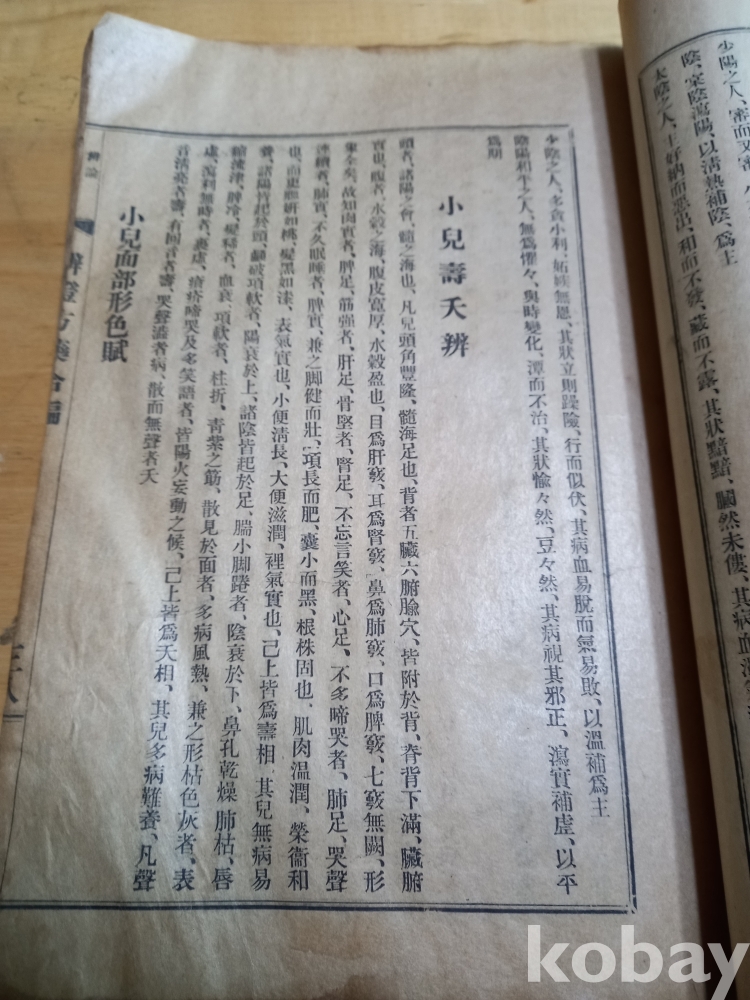 少陽之人、審而又審、
陰、室陰瀉陽、以淸熱補陰、爲主
太陰之人、上好納而惡出、和而不發、藏而不露、其狀黯黯、臞然未僂、其病血
少陰之人、多貪小利、妬嫉無恩、其狀立則躁險、行而似伏、其病血易脫而氣易敗、以溫補爲主
陰陽和平之人、無爲懼々、與時變化、潭而不治、其狀愉々然、豆々然、其病視其邪正、瀉實補虛、以平
爲期
小兒壽夭辨
頭者、諸陽之會、髓之海也、凡兒頭角豐隆、髓海足也、背者五臟六腑腧穴、皆附於背、脊背下滿、臟腑
實也、腹者、水穀之海、腹皮寬厚、水穀盈也、目爲肝竅、耳爲腎竅、鼻爲肺竅、口爲脾竅、七竅無闕、形
象全矣、故知肉實者、脾足、筋强者、肝足、骨堅者、腎足、不忘言笑者、心足、不多啼哭者、肺足、哭聲
連續者、肺實、不久眠睡者、脾實、兼之脚健而壯、項長而肥、囊小而黑、根株固也、肌肉温潤、榮衞和
也、而更顏姸如桃、髮黑如漆、表氣實也、小便淸長、大便滋潤、裡氣實也、己上皆爲壽相、其兒無病易
養、諸陽皆起於頭、顱破項軟者、陽衰於上、諸陰皆起於足、腨小脚踡者、陰衰於下、鼻孔乾燥肺枯、唇
縮流津、脾冷、髮稀者、血衰、項軟者、柱折、靑紫之筋、散見於面者、多病風熱、兼之形枯色灰者、表
虛、瀉利無時者、裏虛、瘡疥啼哭及多笑語者、皆陽火妄動之候、己上皆爲夭相、其兒多病難養、凡聲
音淸亮者壽、有囘音者壽、哭聲澁者病、散而無聲者夭
小兒面部形色賦
辨論
辨證方藥合編
三八
kobay